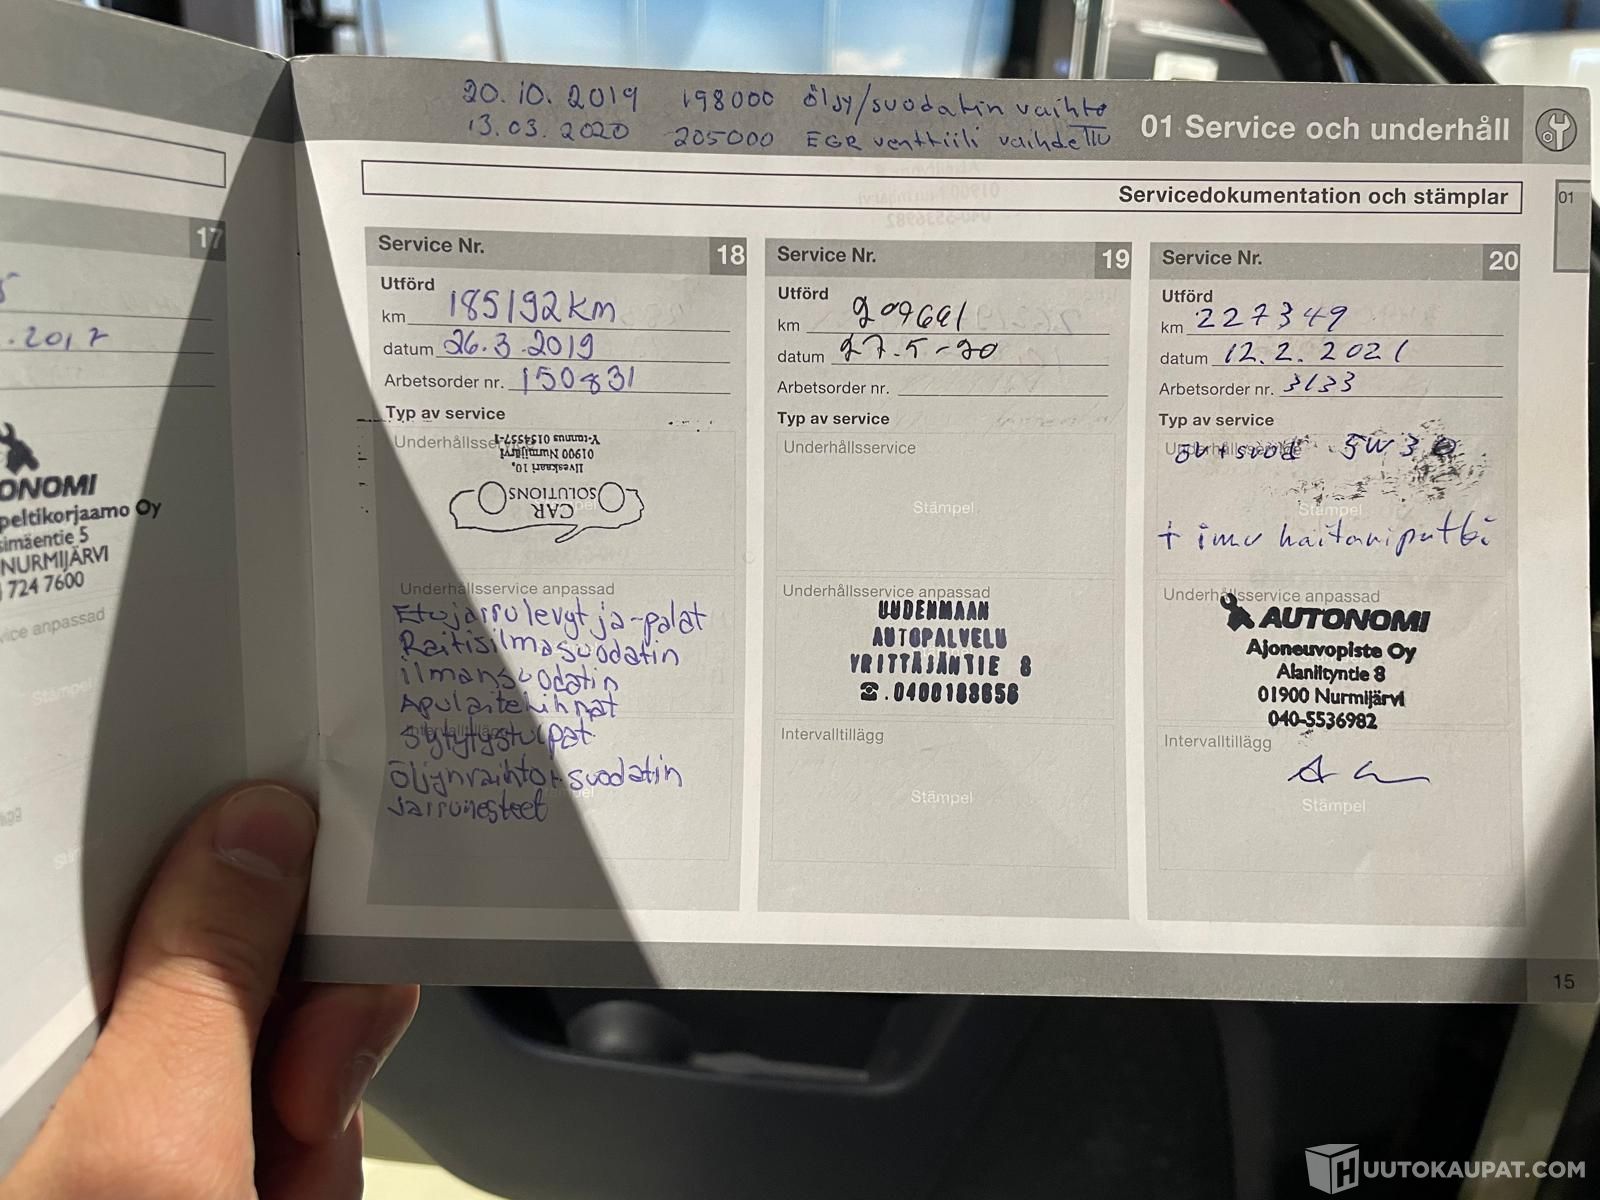 20.10.2019 198000 öljy/suodatin vaihto
13.03.2020 205000 EGR venttiili vaihdettu
01 Service och underhåll
Servicedokumentation och stämplar
01
17
.2017
ONOMI
peltikorjaamo Oy
simäentie 5
NURMIJÄRVI
724 7600
vice anpassad
Stämpel
Service Nr. 18
Utförd
km 185192km
datum 26.3.2019
Arbetsorder nr. 150831
Typ av service
Underhållsservice
Y-tunnus 0154557-1
01900 Nurmijärvi
Ilveskaari 10,
SOLUTIONS
CAR
Underhållsservice anpassad
Etujarrulevyt ja -palat
Raitisilmasuodatin
ilmansuodatin
Apulaitehihnat
Sytytystulpat
Öljynvaihto + suodatin
Jarrunesteet
Service Nr. 19
Utförd
km 209691
datum 27.5-20
Arbetsorder nr.
Typ av service
Underhållsservice
Stämpel
Underhållsservice anpassad
UUDENMAAN
AUTOPALVELU
YRITTÄJÄNTIE 8
☎.0400188656
Intervalltillägg
Stämpel
Service Nr. 20
Utförd
km 227349
datum 12.2.2021
Arbetsorder nr. 3133
Typ av service
Underhållsservice
öl+suod 5W30
Stämpel
+ imu haitariputki
Underhållsservice anpassad
AUTONOMI
Ajoneuvopiste Oy
Alaniityntie 8
01900 Nurmijärvi
040-5536982
Intervalltillägg
Stämpel
15
HUUTOKAUPAT.COM